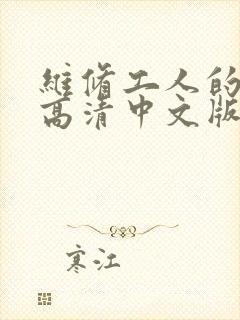 維脩工人的
高清中文版
寒江